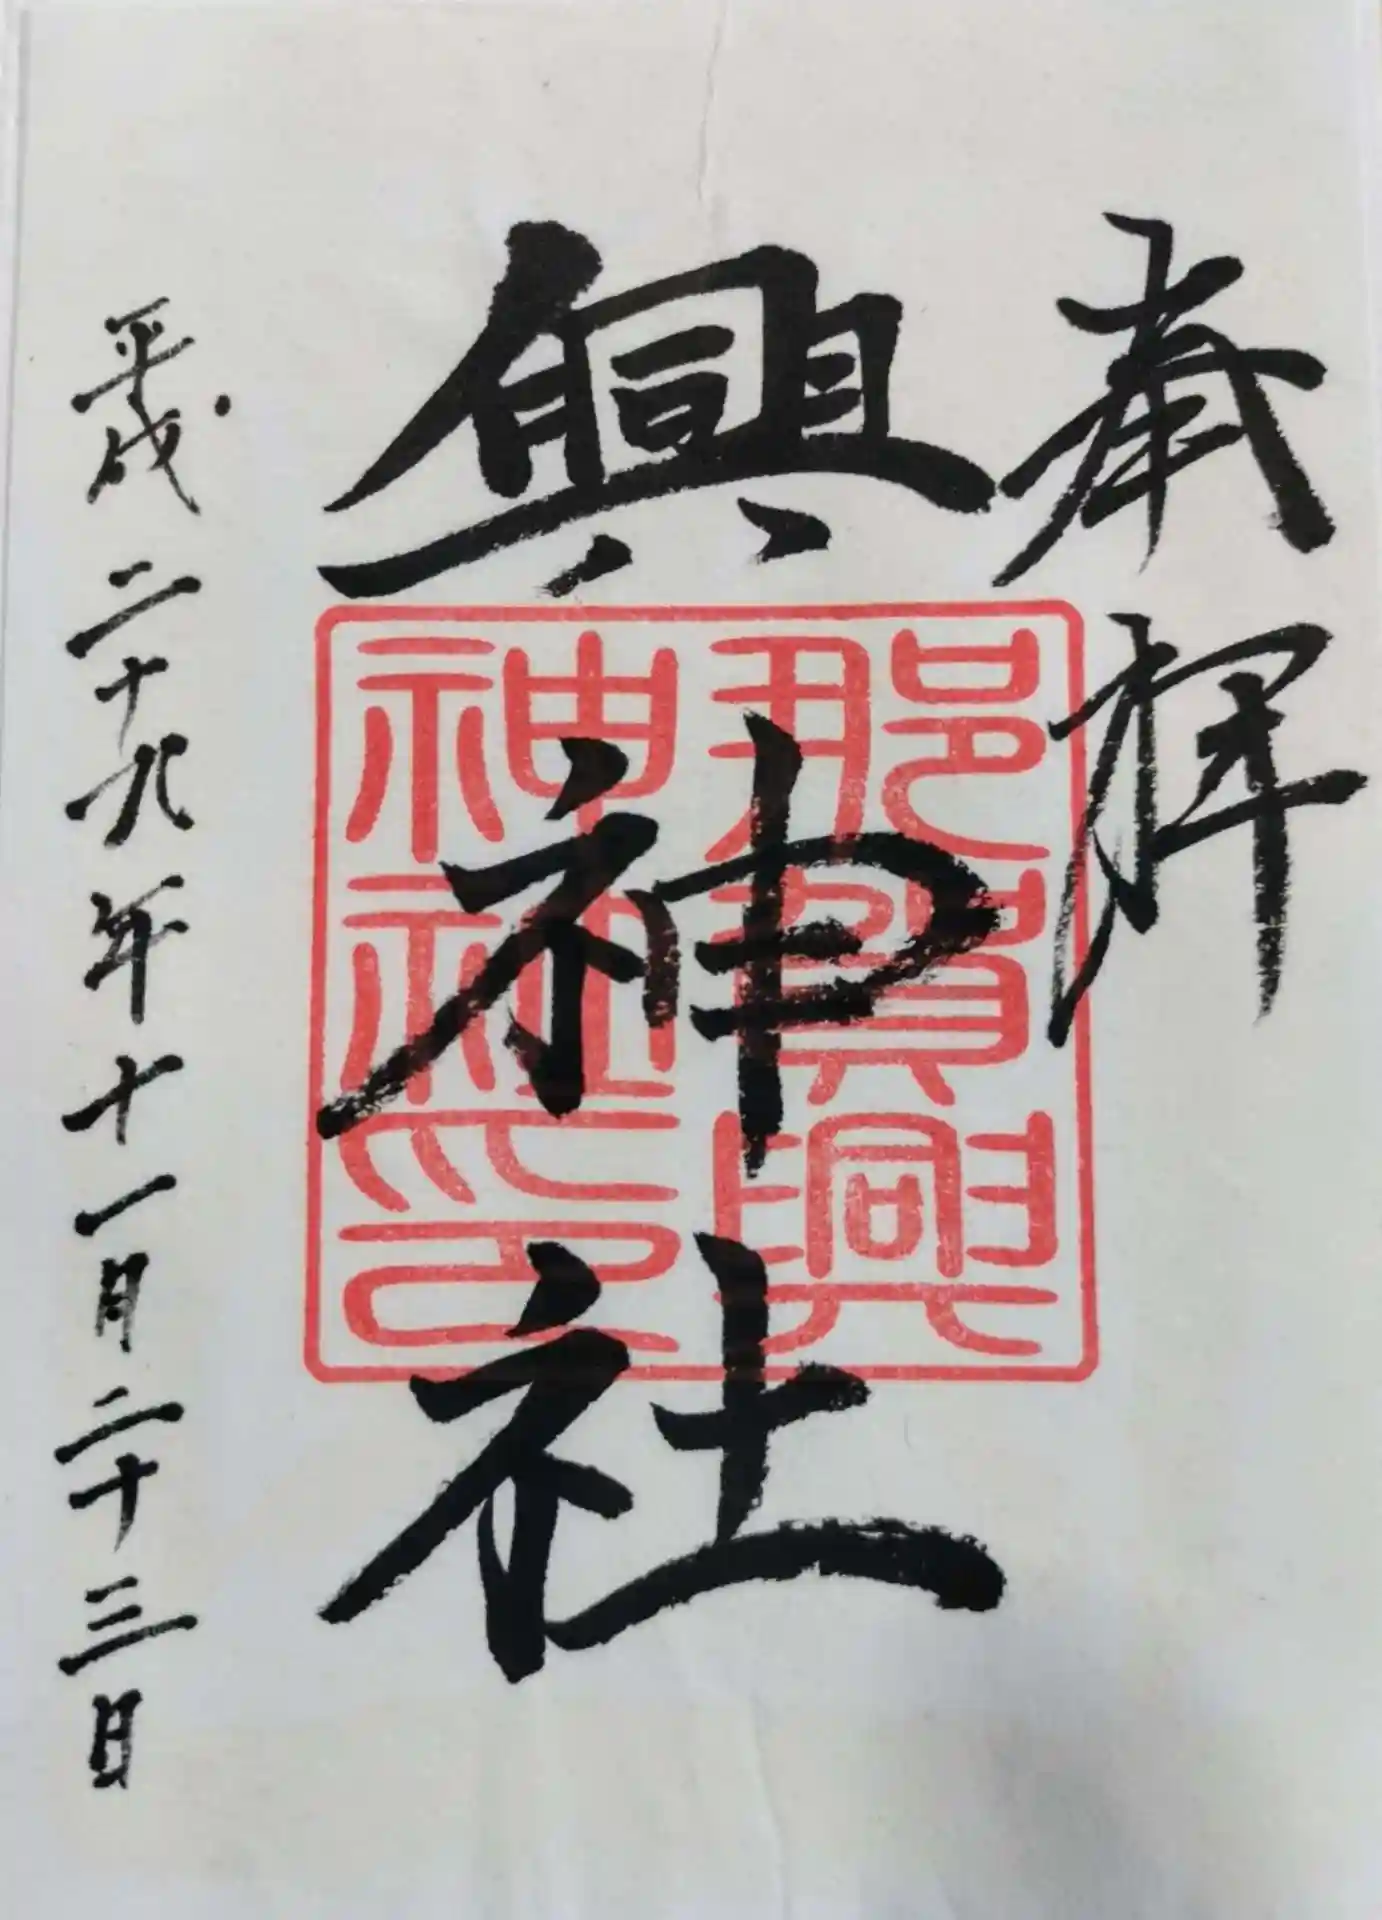 奉拝
興神社
那賀興
神社印
平成二十九年十一月二十三日